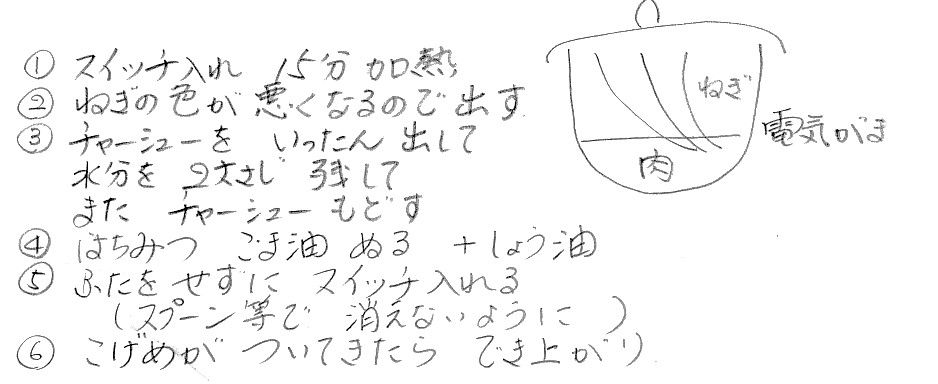 ① スイッチ入れ 15分加熱
② ねぎの色が悪くなるので出す
③ チャーシューを いったん出して
水分を 2大さじ 残して
また チャーシューもどす
④ はちみつ ごま油 ぬる +しょう油
⑤ ふたをせずに スイッチ入れる
(スプーン等で 消えないように)
⑥ こげめが ついてきたら でき上がり
ねぎ
肉
電気がま